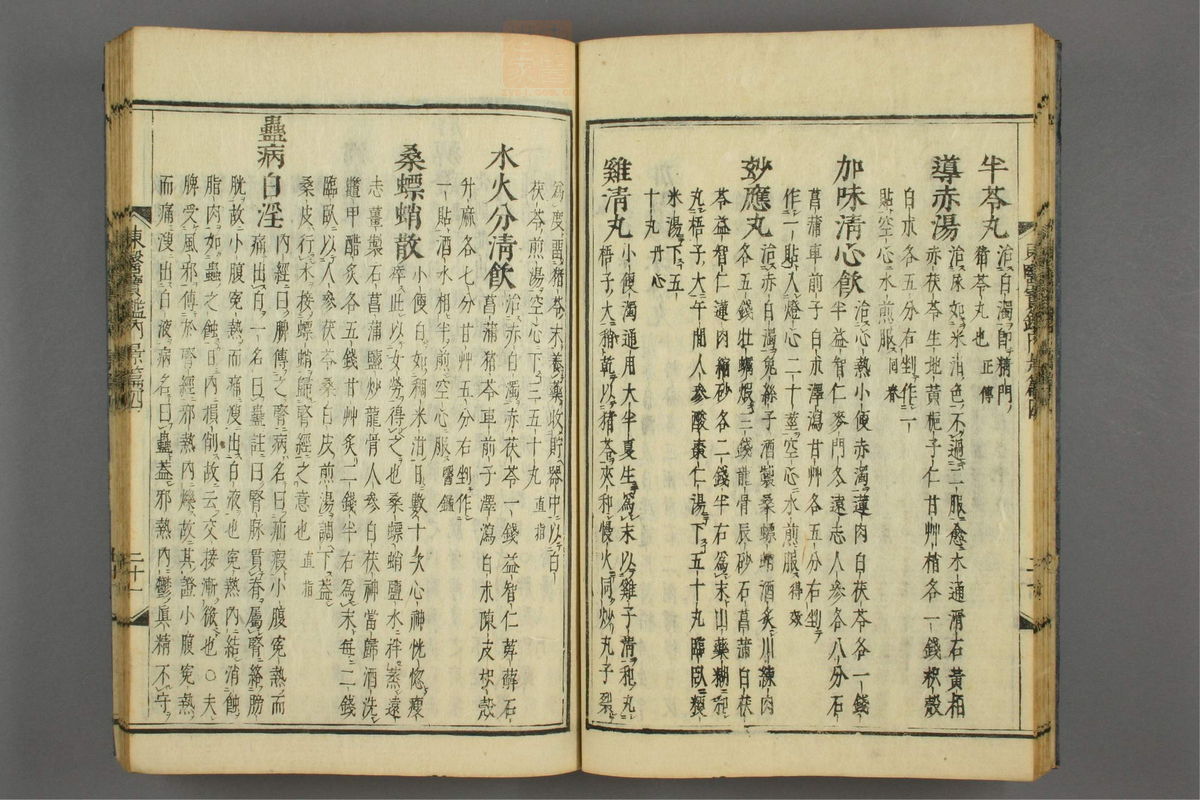 半苓丸 治白濁即精門
猪苓丸也 正傳
導赤湯 治尿如米泔色不過二服愈木通滑石黃栢
赤茯苓生地黃梔子仁甘艸梢各一錢枳殼
白朮各五分右剉作一
貼空心水煎服 回春
加味清心飮 治心熱小便赤濁蓮肉白茯苓各一錢
半益智仁麥門冬遠志人參各八分石
菖蒲車前子白朮澤瀉甘艸各五分右剉
作一貼入燈心二十莖空心水煎服 得效
妙應丸 治赤白濁兔絲子酒製桑螵蛸酒炙川練肉
各五錢牡蠣煆三錢龍骨辰砂石菖蒲白茯
苓益智仁蓮肉縮砂各二錢半右爲末山藥糊和
丸梧子大午間人參酸棗仁湯下五十丸臨臥糯
米湯下五
十丸 丹心
雞淸丸 小便濁通用大半夏生爲末以雞子淸和丸
梧子大稍乾以猪苓夾和慢火同炒丸子裂
爲度留猪苓末養藥收貯器中以白
茯苓煎湯空心下三五十丸 直指
水火分清飮 治赤白濁赤茯苓一錢益智仁萆薢石
菖蒲猪苓車前子澤瀉白朮陳皮枳殼
升麻各七分甘艸五分右剉作
一貼酒水相半煎空心服 醫鑑
桑螵蛸散 小便白如稠米泔日數十次心神恍惚瘦
瘁此以女勞得之也桑螵蛸鹽水拌蒸遠
志薑製石菖蒲鹽炒龍骨人參白茯神當歸酒洗
鼈甲醋炙各五錢甘艸炙二錢半右爲末每二錢
臨臥以人參茯苓桑白皮煎湯調下盖
桑皮行水接螵蛸歸腎經之意也 直指
蠱病白淫 內經曰脾傳之腎病名曰疝瘕小腹寃熱而
痛出白一名曰蠱註曰腎脉貫脊屬腎絡膀
胱故小腹寃熱而痛溲出白液也寃熱內結消蝕
脂肉如蟲之蝕日內損削故云交接漸微也○夫
脾受風邪傳於腎經邪熱內爍故其證小腹寃熱
而痛溲出白液病名曰蠱盖邪熱內鬱眞精不守
東醫寶鑑內景篇四
二十一